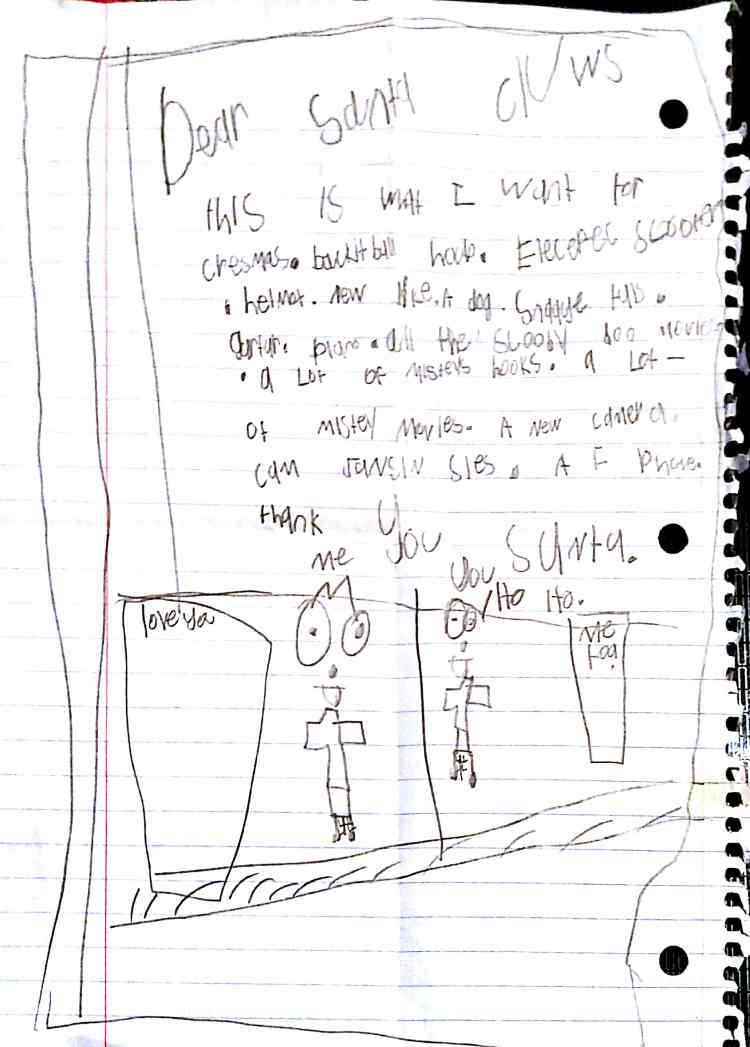 Dear Santa clVws
this is wat I want for
cresmas. backit ball hoop. Elecepec scooter
. helmot. new like. A dog. Snayye
Gartar. piano. all the scooby doo movies
. a Lot of misterys books. a Lot —
of mistey Movies. A new camera.
can A F Phone.
thank you Santa.
me
you
Ho Ho.
love ya
Me
too!